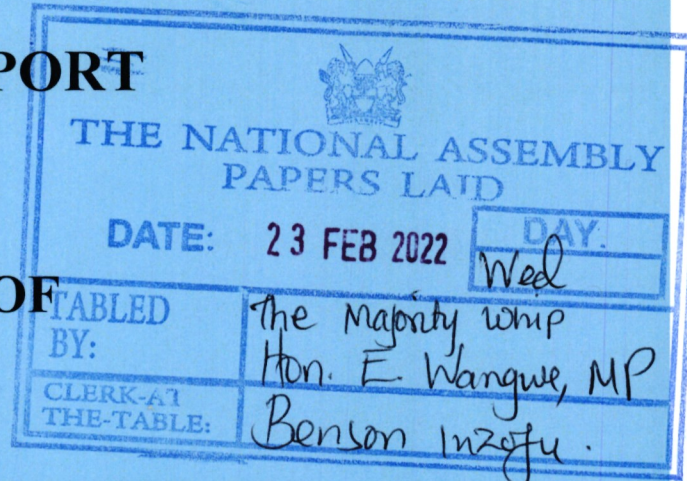 PORT
THE NATIONAL ASSEMBLY
PAPERS LAID
DATE: 23 FEB 2022 DAY.
Wed
OF
TABLED BY: The Majority Whip
Hon. E. Wangwe, MP
CLERK-AT THE-TABLE: Benson Inzofu.